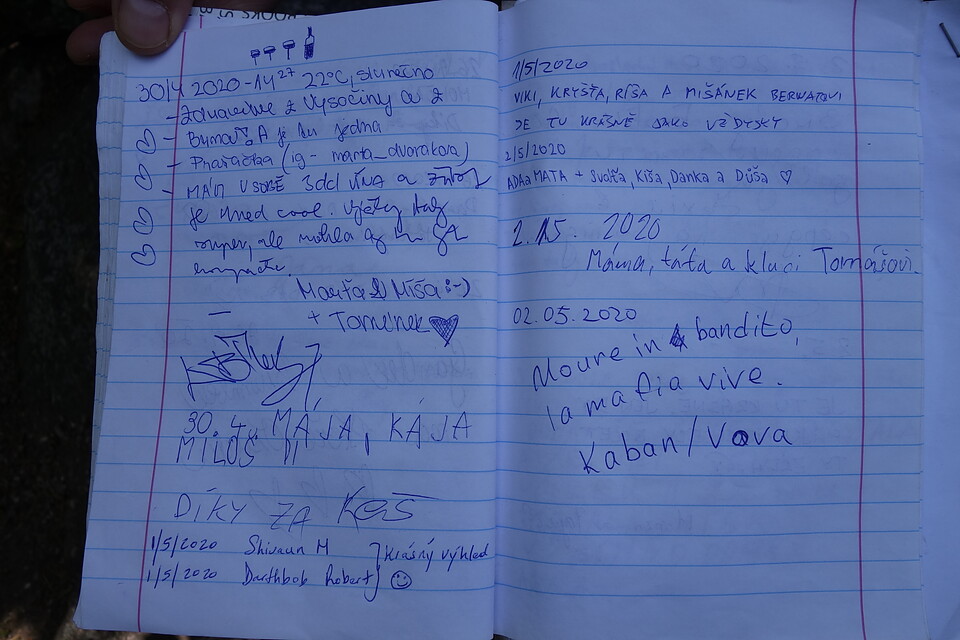 30/4 2020 - 14²⁷ 22°C, slunečno
- Zdravíme z Vysočiny a z
A je tu jedna
(ig - marta_dvorakova)
MÁM V SOBĚ 3dcl VÍNA a
je hned cool.
super, ale mohla
Marťa & Míša :-)
+ Tomínek ♥
30. 4. MÁJA, KÁJA
MILOŠ
DÍKY ZA KEŠ
1/5/2020 Shivaun M
1/5/2020 Darthbob Robert } krásný výhled ☺
1/5/2020
VIKI, KRYŠŤA, RÍŠA A MIŠÁNEK
JE TU KRÁSNĚ JAKO VŽDYSKY
2/5/2020
ADA a MATA + Svoťa, Kiša, Danka a Důša ♡
2. 5. 2020
Máma, táta a kluci Tomášovi.
02.05.2020
Moure in bandito,
la mafia vive.
Kaban/Vova